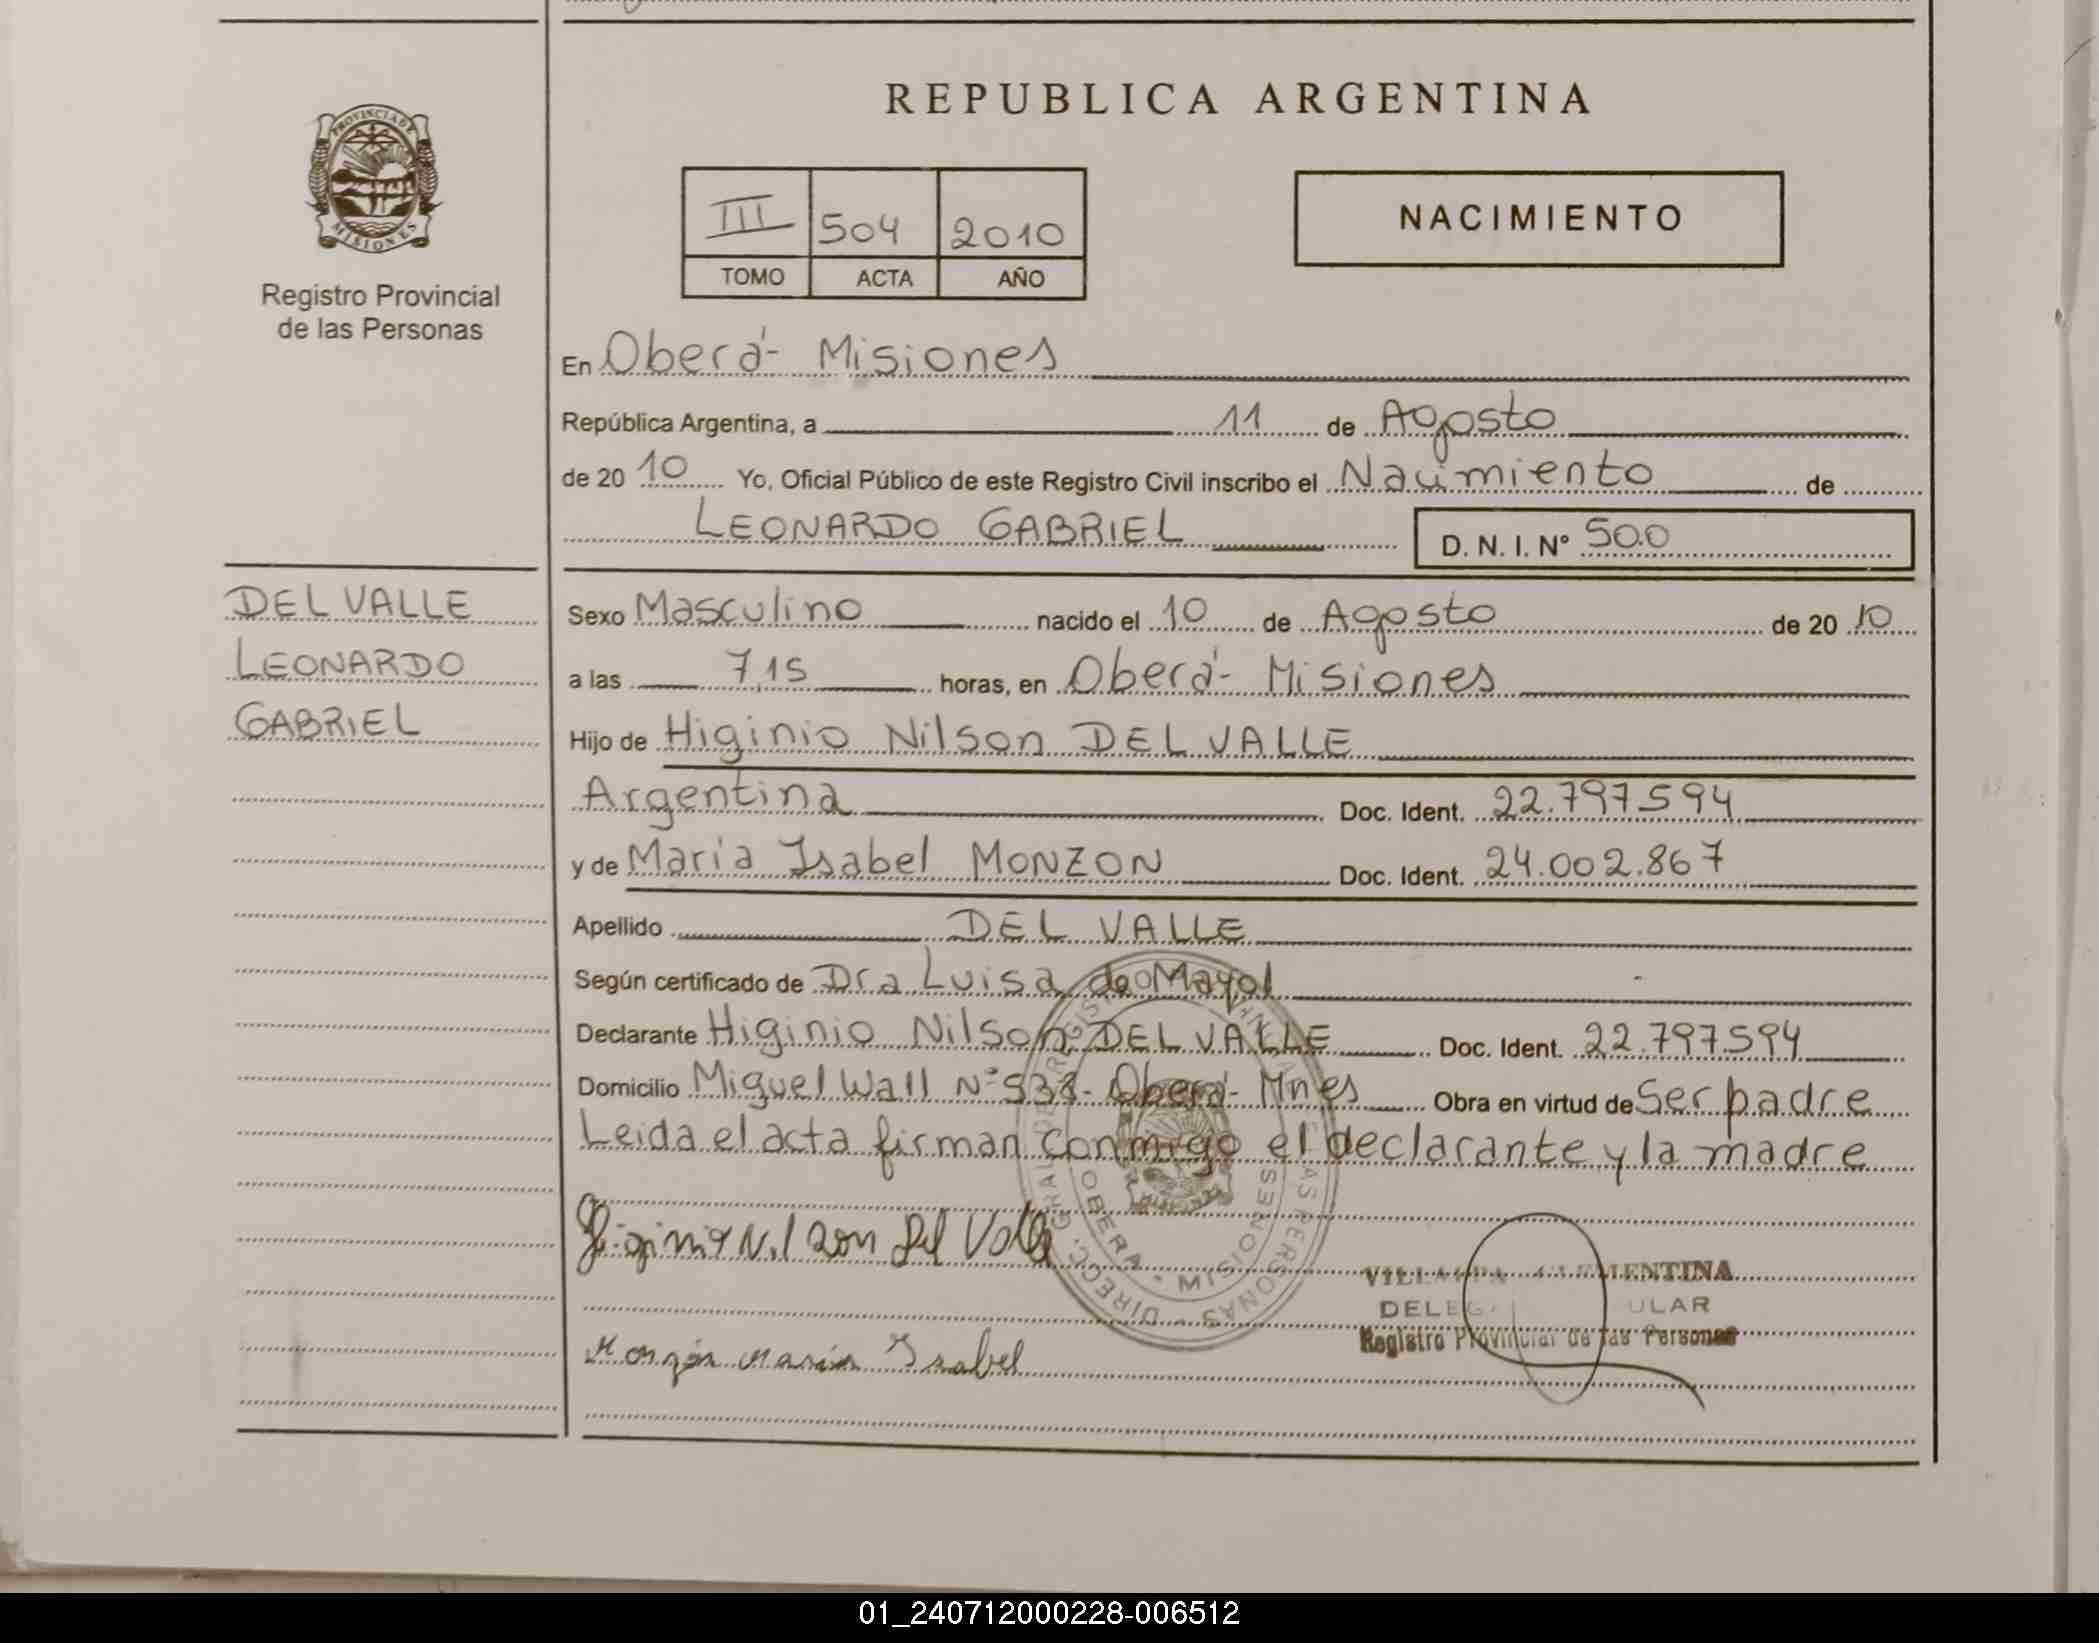 REPUBLICA ARGENTINA
PROVINCIA DE MISIONES
Registro Provincial
de las Personas
III 504 2010
TOMO ACTA AÑO
NACIMIENTO
En Oberá - Misiones
República Argentina, a 11 de Agosto
de 20 10 Yo, Oficial Público de este Registro Civil inscribo el Nacimiento de
LEONARDO GABRIEL D. N. I. Nº 50.0
DEL VALLE
LEONARDO
GABRIEL
Sexo Masculino nacido el 10 de Agosto de 20 10
a las 7,15 horas, en Oberá - Misiones
Hijo de Higinio Nilson DEL VALLE
Argentina Doc. Ident. 22.797.594
y de María Isabel MONZON Doc. Ident. 24.002.867
Apellido DEL VALLE
Según certificado de Dra Luisa de Mayol
Declarante Higinio Nilson DEL VALLE Doc. Ident. 22.797.594
Domicilio Miguel Wall Nº 938 - Oberá - Mnes Obra en virtud de Ser padre
Leida el acta firman conmigo el declarante y la madre
Higinio Nilson Del Valle
OBERA - MISIONES
Monzón María Isabel
Registro Provincial de las Personas
01_240712000228-006512